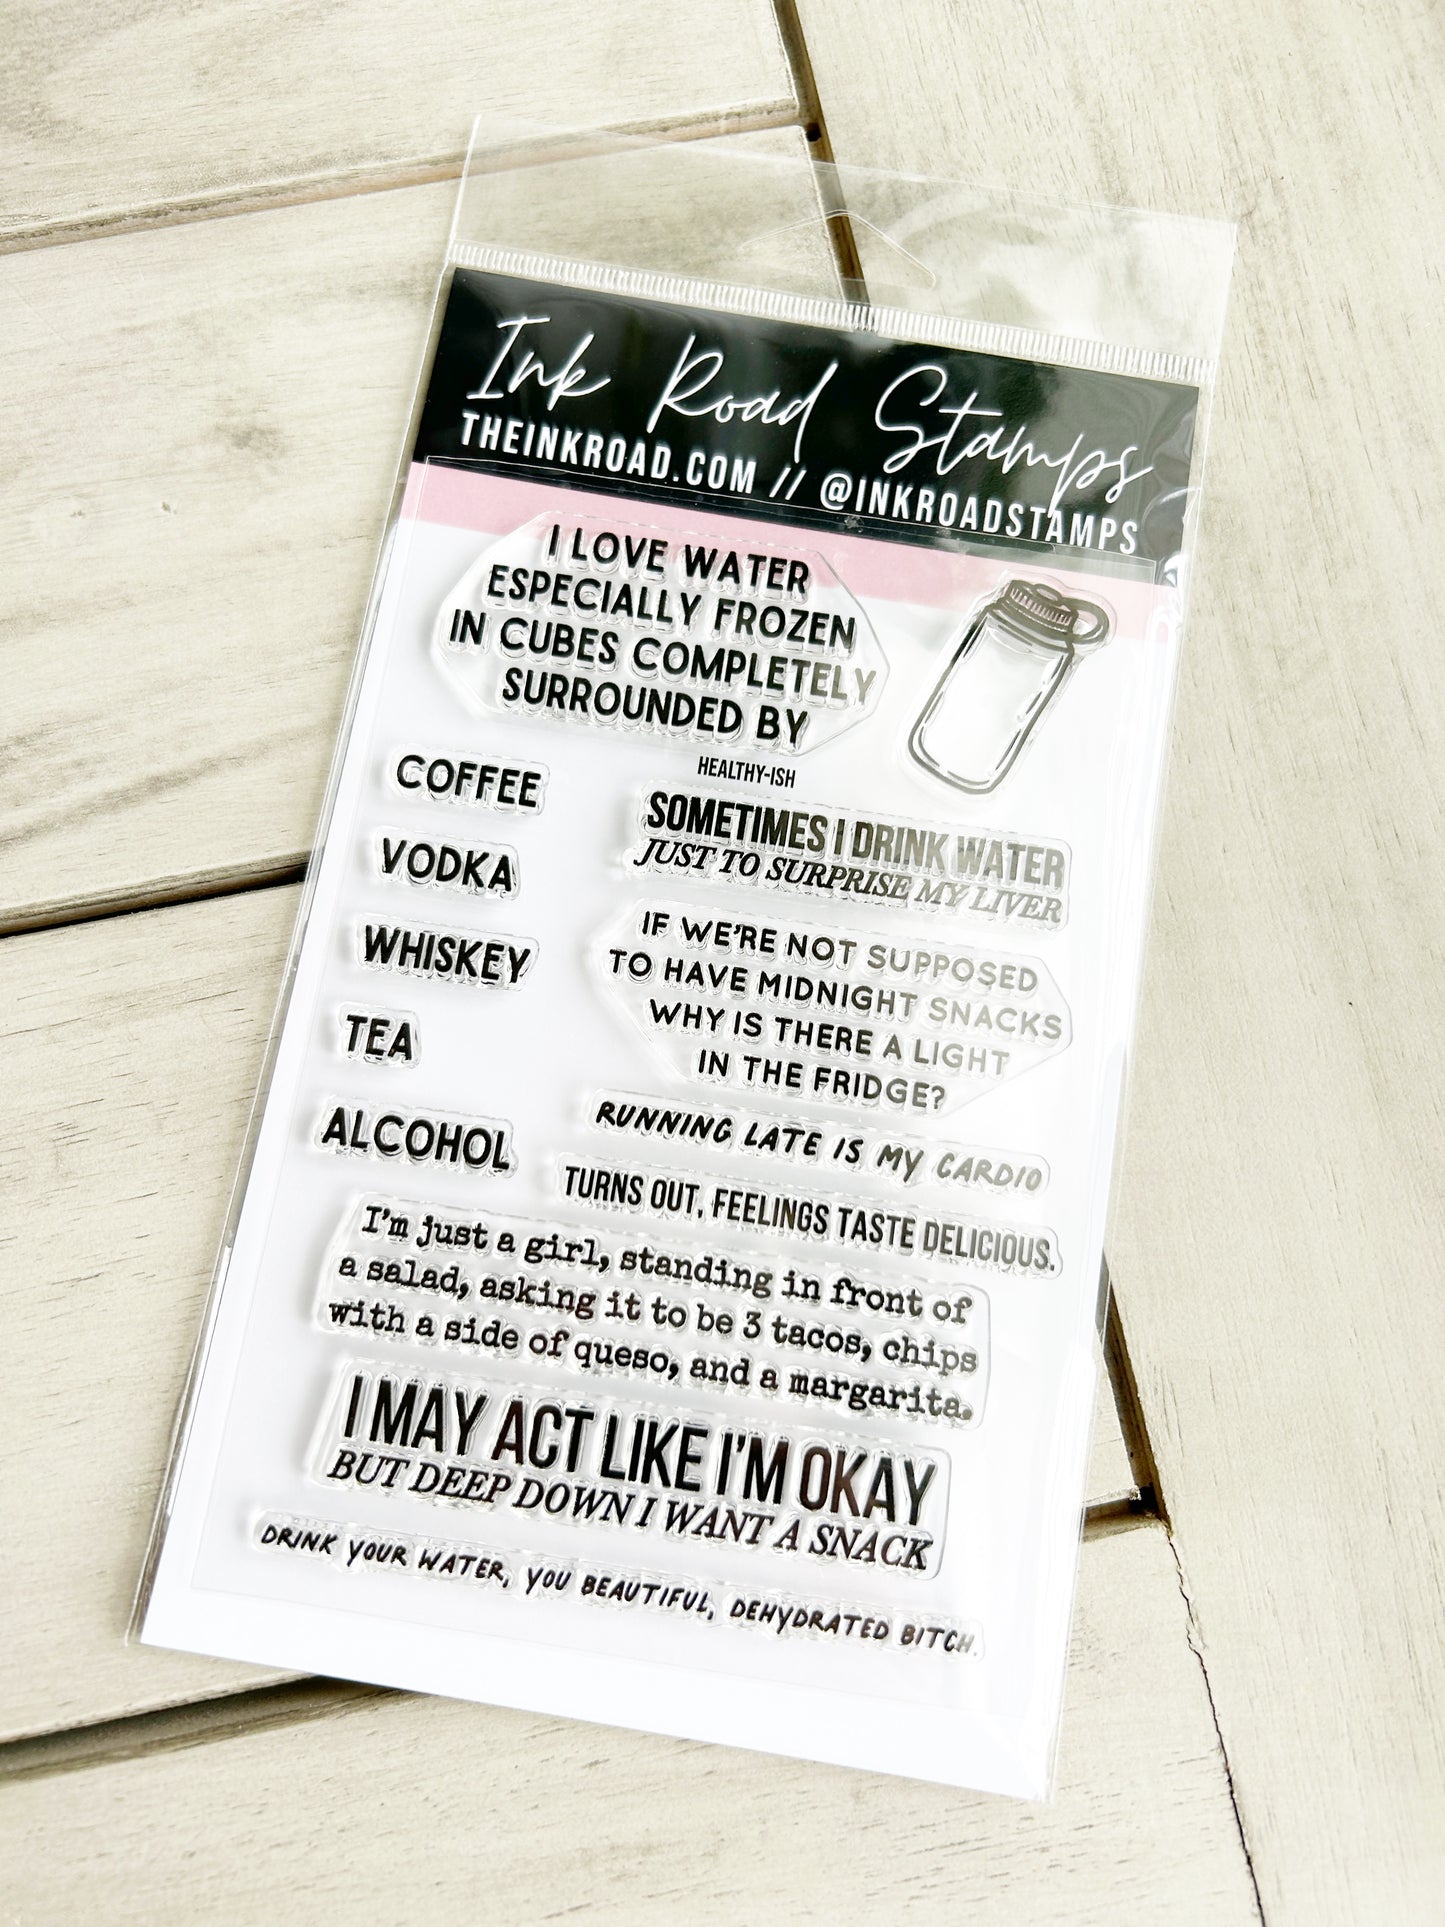 Ink Road Stamps
THEINKROAD.COM // @INKROADSTAMPS
I LOVE WATER
ESPECIALLY FROZEN
IN CUBES COMPLETELY
SURROUNDED BY
HEALTHY-ISH
COFFEE
VODKA
WHISKEY
TEA
ALCOHOL
SOMETIMES I DRINK WATER
JUST TO SURPRISE MY LIVER
IF WE'RE NOT SUPPOSED
TO HAVE MIDNIGHT SNACKS
WHY IS THERE A LIGHT
IN THE FRIDGE?
RUNNING LATE IS MY CARDIO
TURNS OUT, FEELINGS TASTE DELICIOUS.
I'm just a girl, standing in front of
a salad, asking it to be 3 tacos, chips
with a side of queso, and a margarita.
I MAY ACT LIKE I'M OKAY
BUT DEEP DOWN I WANT A SNACK
DRINK YOUR WATER, YOU BEAUTIFUL, DEHYDRATED BITCH.